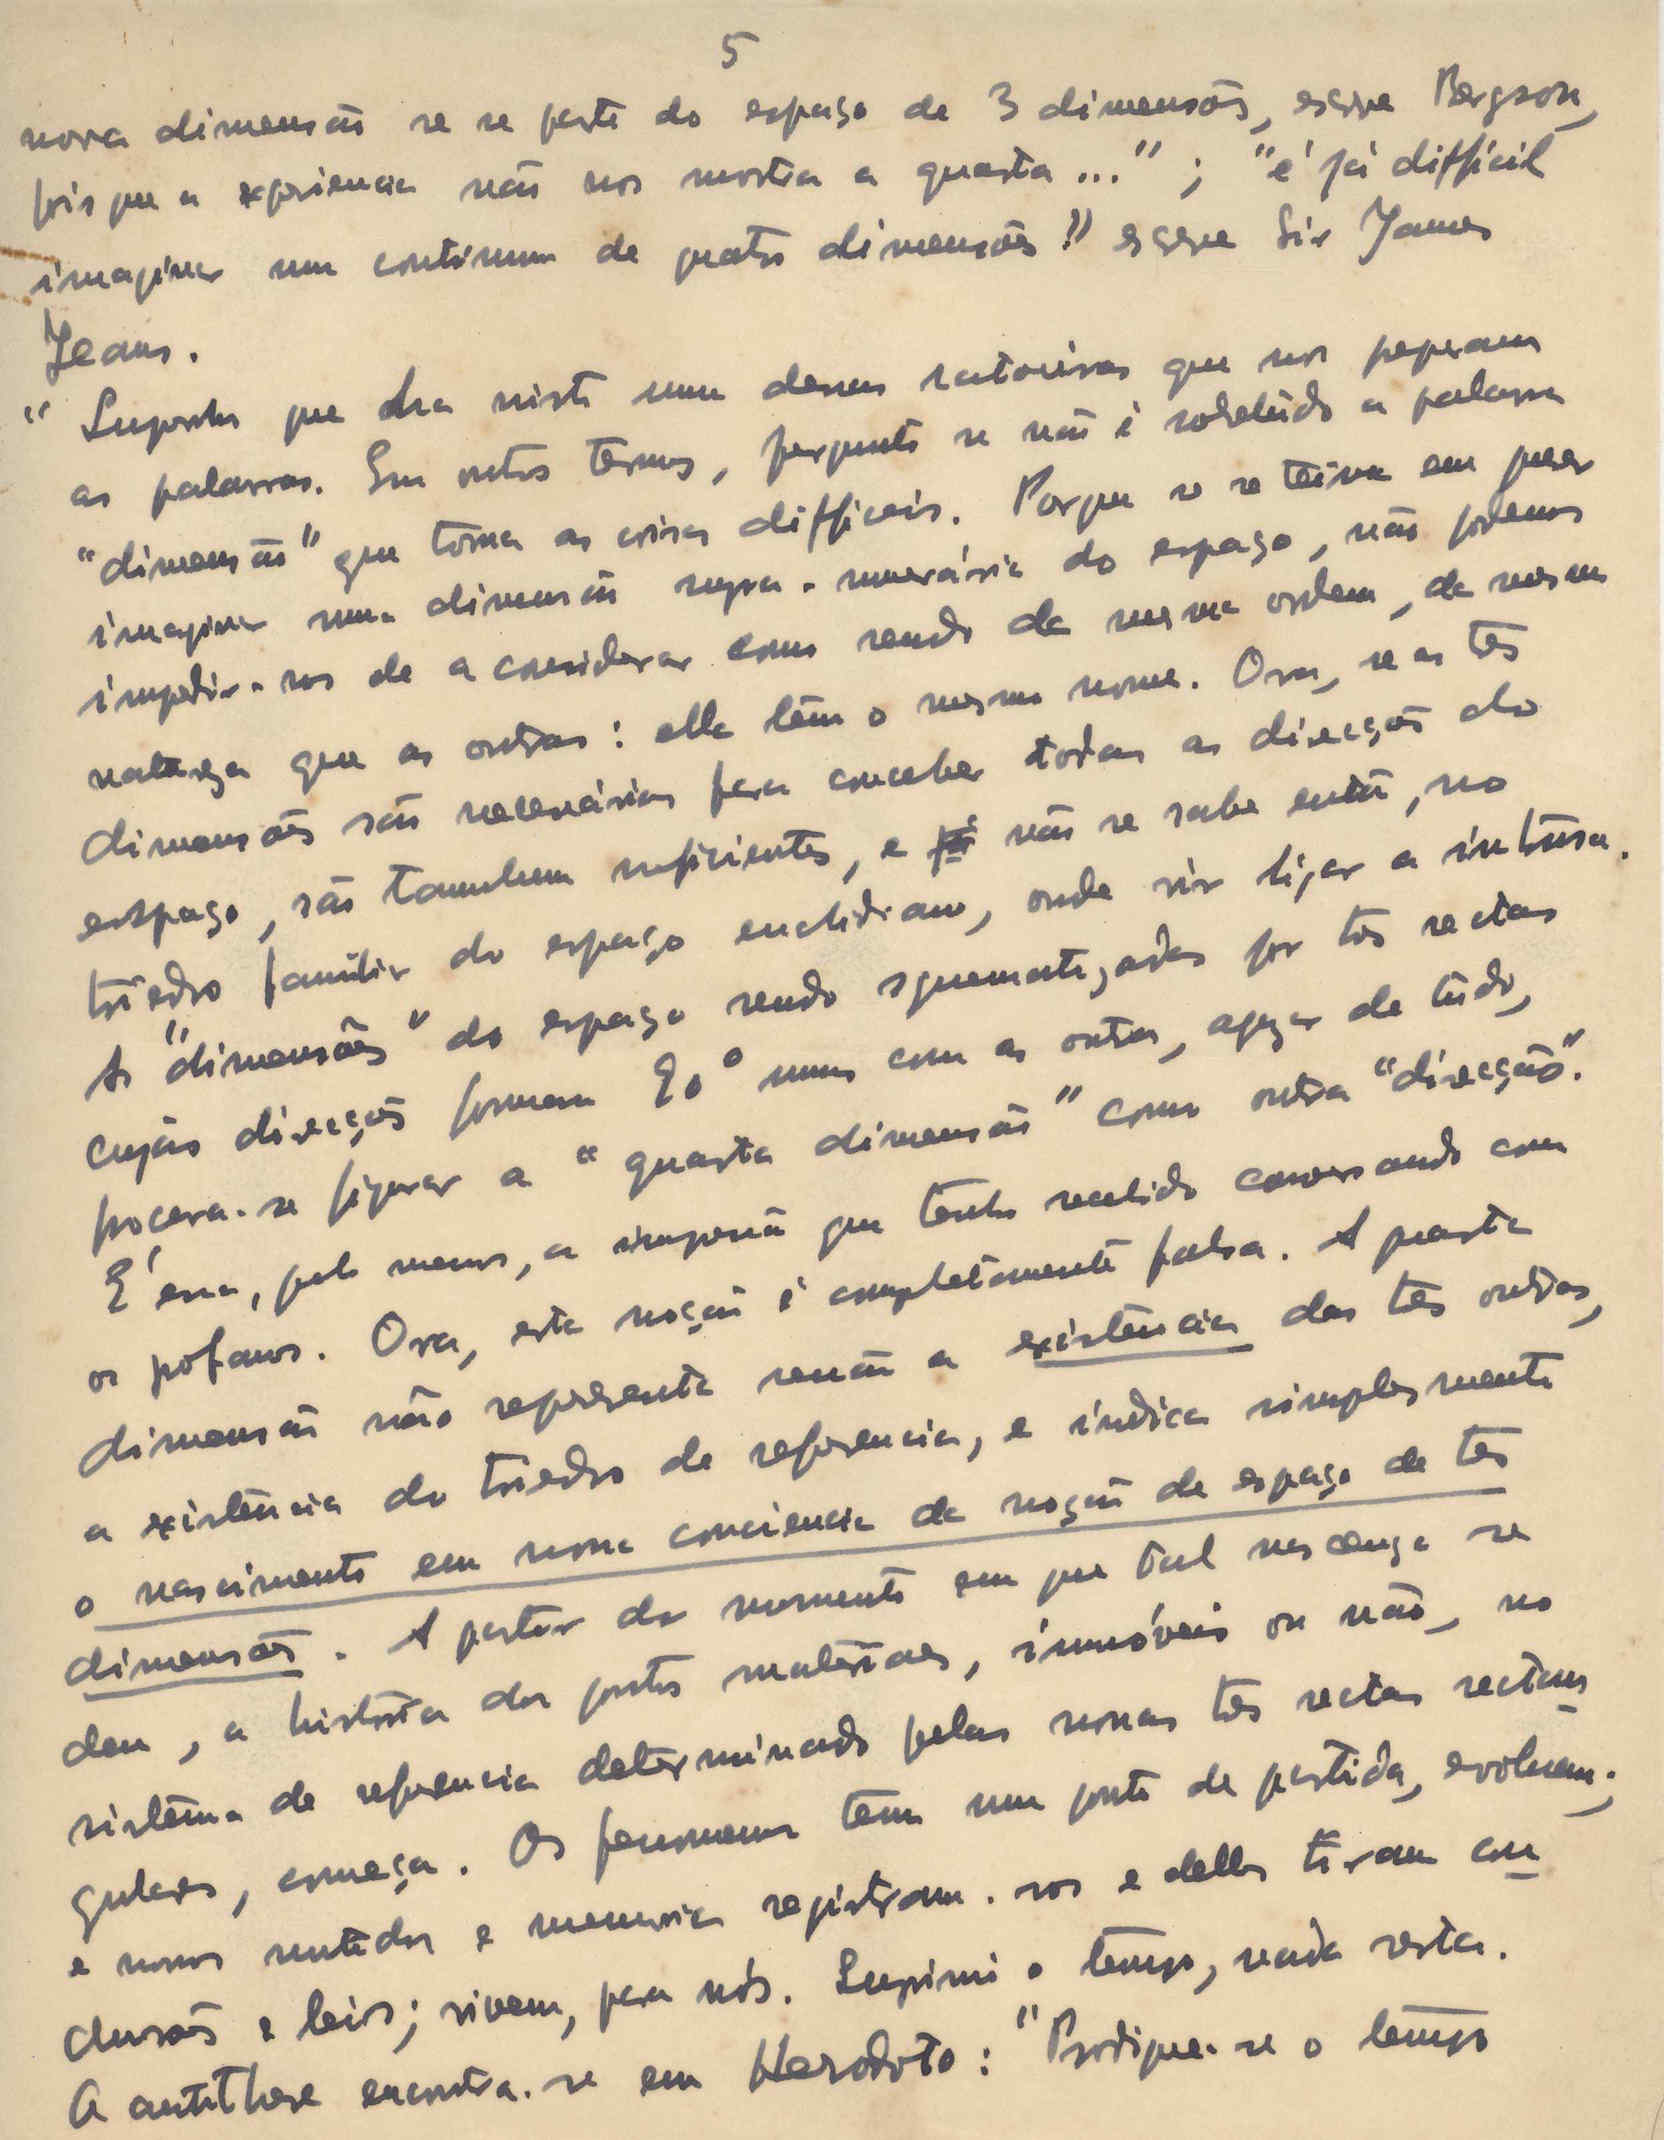 5
nova dimensão se se parte do espaço de 3 dimensões, escreve Bergson,
pois que a experiencia não nos mostra a quarta..." ; "é já difficil
imaginar um continuum de quatro dimensões" escreve Sir James
Jeans.
" Supponho que ha nisto uma dessas ratoeiras que nos pregaram
as palavras. Em outros termos, pergunto se não é sobretudo a palavra
"dimensão" que torna as coisas difficeis. Porque se se teima em querer
imaginar uma dimensão supra-numerária do espaço, não podemos
impedir-nos de a considerar como sendo da mesma ordem, da mesma
natureza que as outras: ella têm o mesmo nome. Ora, se as tres
dimensões são necessárias para conceber todas as direcções do
espaço, são tambem suficientes, e não se sabe então, no
triedro familiar do espaço euclidiano, onde vir ligar a intrusa.
As "dimensões" do espaço sendo squematizadas por tres rectas
cujas direcções formam 90° umas com as outras, apezar de tudo,
procura-se figurar a "quarta dimensão" como outra "direcção".
É essa, pelo menos, a impressão que tenho recebido conversando com
os profanos. Ora, esta noção é completamente falsa. A quarta
dimensão não representa senão a existência das tres outras,
a existência do triedro de referencia, e indica simplesmente
o nascimento em nossa consciencia da noção de espaço de tres
dimensões. A partir do momento em que tal nascença se
deu, a história dos pontos materiaes, immóveis ou não, no
sistêma de referencia determinado pelas nossas tres rectas rectan
gulares, começa. Os fenomenos têm um ponto de partida, evoluem;
e nossos sentidos e memoria registram-nos e delles tiram con
clusões e leis; vivem, para nós. Suprimi o tempo, nada resta.
A antithese encontra-se em Herodoto: "Prodigue-se o tempo